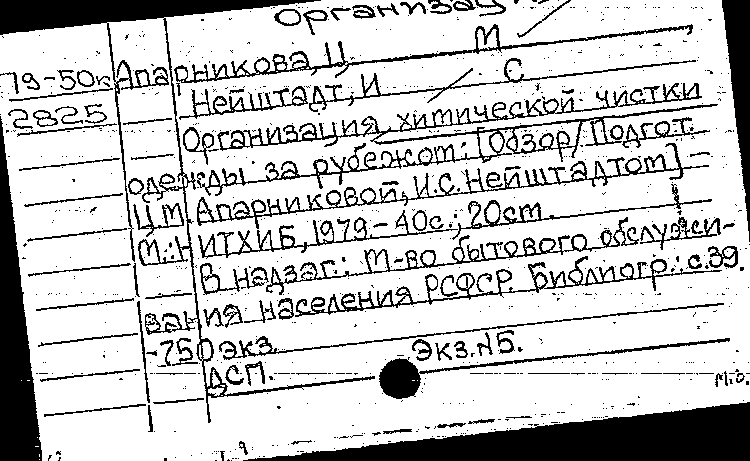 Организац
79-50к Апарникова, Ц М
2825 Нейштадт, И С
Организация химической чистки
одежды за рубежом: [Обзор/Подгот.
Ц.М. Апарниковой, И.С. Нейштадтом] –
М.: НИТХИБ, 1979.– 40с.; 20см.
В надзаг.: М-во бытового обслужи-
вания населения РСФСР. Библиогр.: с.39.
-750 экз. Экз.№5.
ДСП.
м.о.